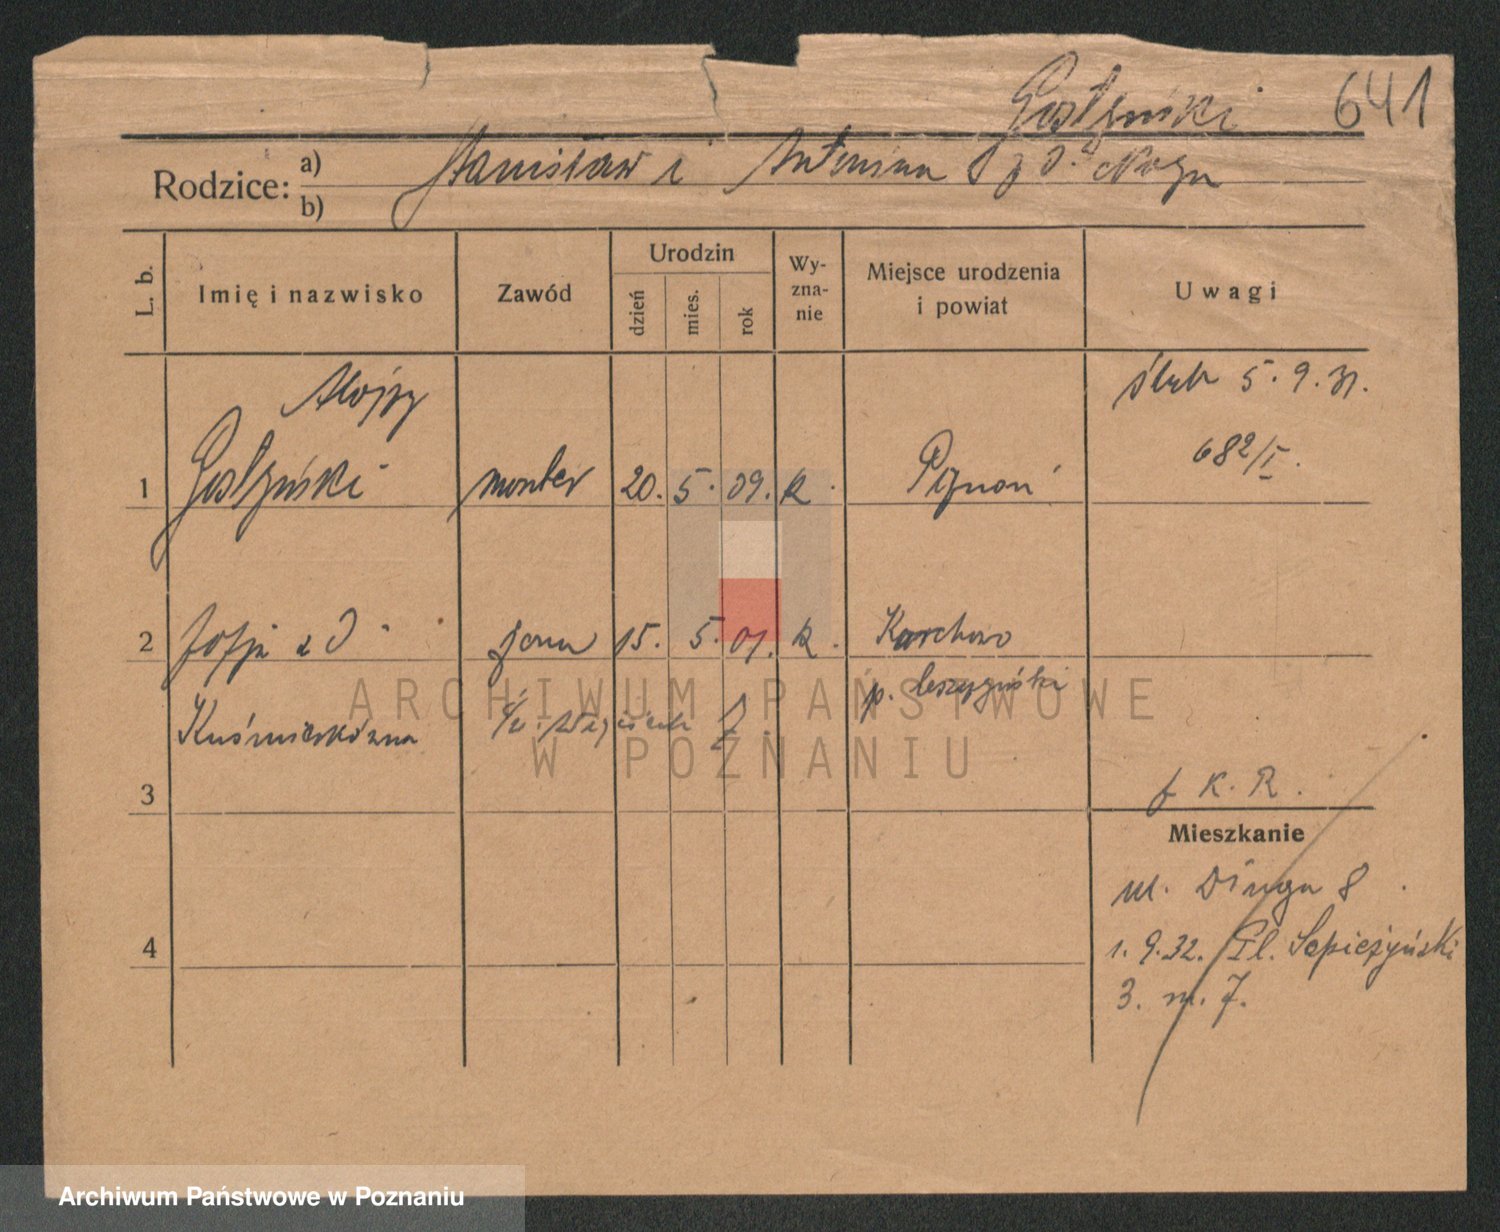 Gostyński 641
Rodzice: a) Stanisław i Antonina z d. Noga
b)
L. b. Imię i nazwisko Zawód Urodzin dzień mies. rok Wy-zna-nie Miejsce urodzenia i powiat Uwagi
Alojzy ślub 5. 9. 31.
682/I.
1 Gostyński monter 20. 5. 09. k. Poznań
2 Zofja z d. żona 15. 5. 07. k. Karchowo
p. leszczyński
Kuśnierkówna
3 K. R.
Mieszkanie
ul. Długa 8
1. 9. 32. Pl. Sapieżyński
4
3. m. 7.
ARCHIWUM PAŃSTWOWE
W POZNANIU
Archiwum Państwowe w Poznaniu